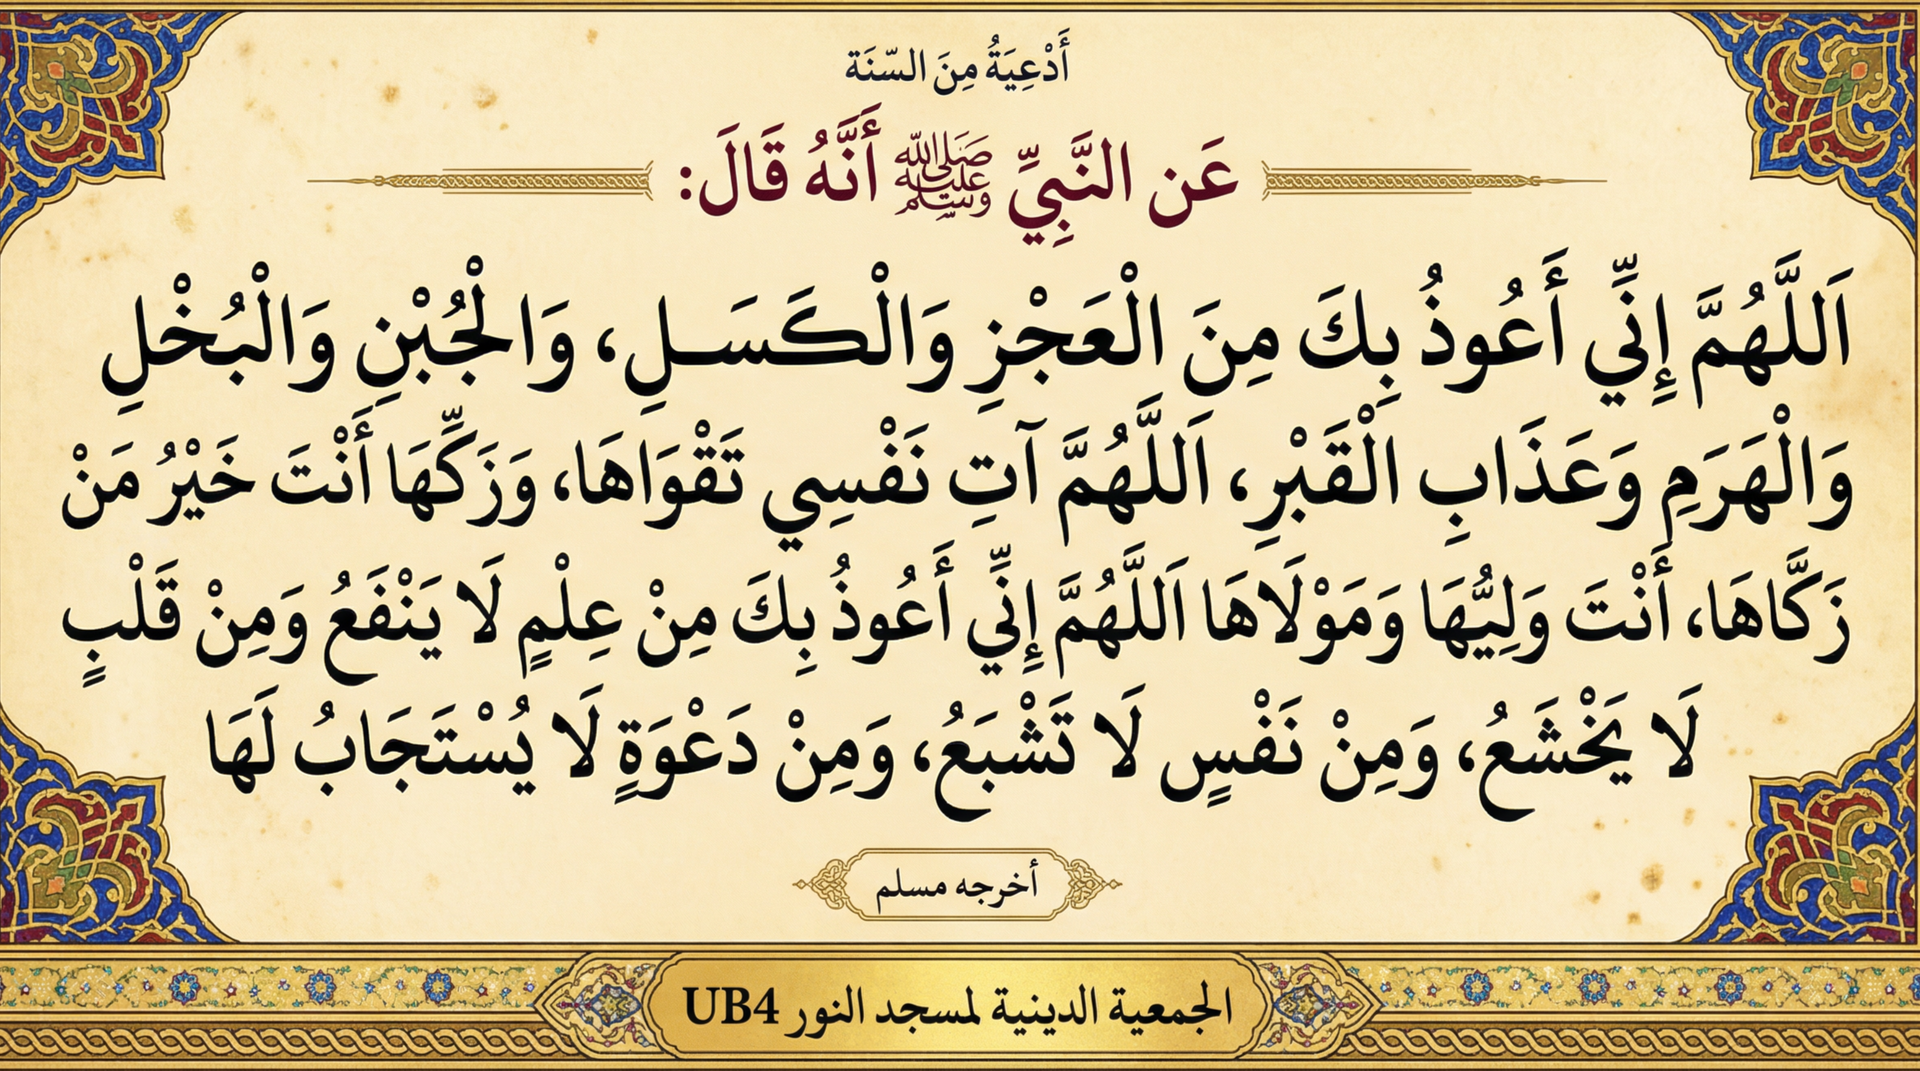 أَدْعِيَةُ مِنَ السّنَة
عَن النَّبِيِّ ﷺ أَنَّهُ قَالَ:
اَللَّهُمَّ إِنِّي أَعُوذُ بِكَ مِنَ الْعَجْزِ وَالْكَسَلِ، وَالْجُبْنِ وَالْبُخْلِ
وَالْهَرَمِ وَعَذَابِ الْقَبْرِ، اَللَّهُمَّ آتِ نَفْسِي تَقْوَاهَا، وَزَكِّهَا أَنْتَ خَيْرُ مَنْ
زَكَّاهَا، أَنْتَ وَلِيُّهَا وَمَوْلَاهَا اَللَّهُمَّ إِنِّي أَعُوذُ بِكَ مِنْ عِلْمٍ لَا يَنْفَعُ وَمِنْ قَلْبٍ
لَا يَخْشَعُ، وَمِنْ نَفْسٍ لَا تَشْبَعُ، وَمِنْ دَعْوَةٍ لَا يُسْتَجَابُ لَهَا
أخرجه مسلم
الجمعية الدينية لمسجد النور UB4